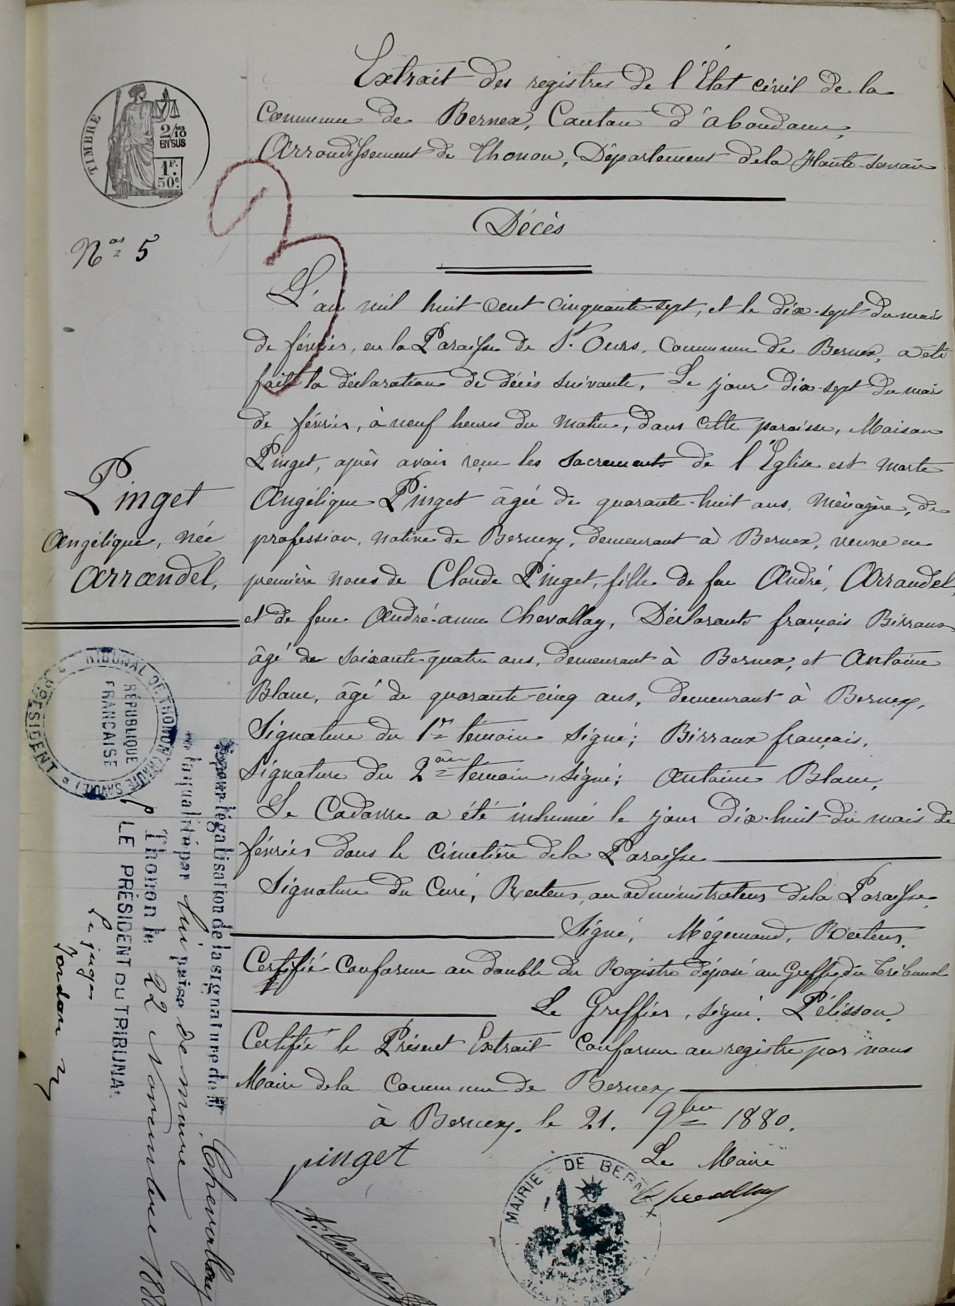 Extrait des registres de l'État civil de la
Commune de Bernex, Canton d'abondance,
Arrondissement de Thonon, Département de la Haute-Savoie
TIMBRE
2/10
EN SUS
1F.
50c.
Décès
Nos 5
L'an mil huit cent cinquante-sept, et le dix-sept du mois
de février, en la Paroisse de St. Ours, Commune de Bernex, a été
faite la déclaration de décès suivante. Le jour dix-sept du mois
de février, à neuf heures du matin, dans cette paroisse, Maison
Pinget, après avoir reçu les sacrements de l'Église est morte
Angélique Pinget âgée de quarante-huit ans, ménagère, de
profession, native de Bernex, demeurant à Bernex, veuve en
première noces de Claude Pinget, fille de feu André, Arrandel,
et de feue André-anne Chevallay, Déclarants françois Birraux
âgé de soixante-quatre ans, demeurant à Bernex, et Antoine
Blanc, âgé de quarante-cinq ans, demeurant à Bernex,
Signature du 1er temoin signé; Birraux françois,
Signature du 2ème temoin, signé; Antoine Blanc,
Le Cadavre a été inhumé le jour dix-huit du mois de
février dans le cimetière de la Paroisse
Signature du Curé, Recteur, ou administrateur de la Paroisse
Signé, Mégemond, Recteur.
Certifié Conforme au double du Registre déposé au Greffe du Tribunal
Le Greffier, signé. Pélisson.
Certifié le Présent Extrait conforme au registre par nous
Maire de la Commune de Bernex
à Bernex, le 21. 9bre 1880.
Le Maire
pinget
MAIRIE DE BERNEX
HAUTE-SAVOIE
Pinget
Angélique, née
Arrandel,
PRÉSIDENT DU TRIBUNAL DE THONON (HAUTE SAVOIE)
RÉPUBLIQUE
FRANÇAISE
Vu pour légalisation de la signature de M Chevallay
en la qualité par lui prise de maire
Thonon le 22 Novembre 188
LE PRÉSIDENT DU TRIBUNAL
Le juge